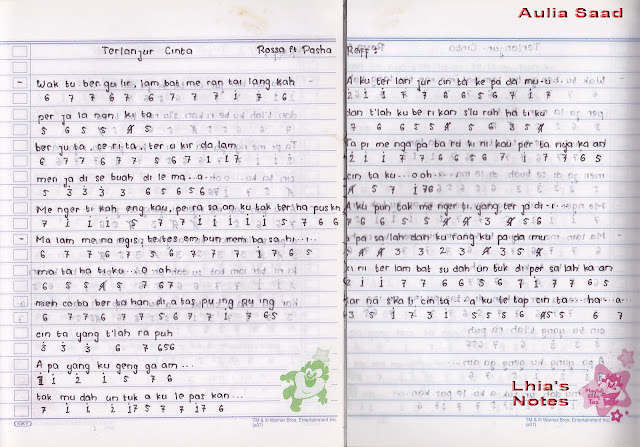 Aulia Saad
Terlanjur Cinta
Rossa ft. Pasha
Wak tu ber gu lir, lam bat me ran tai lang kah
6 7 7 6 7 6 7 7 7 i 7 6
per ja la nan ki ta
5 6 5 5
ber ju ta ce ri ta, ter u kir da lam
6 7 7 6 7 7 5 6 7 i i 7
men ja di se buah di le ma...a
5 3 3 3 3 6 5 6 5 6
Me nger ti kah eng kau, pe ra sa an ku tak ter ha pus kn
7 i i i 7 i i i i i 5 7 6 6
Ma lam me na ngis, te tes em bun mem ba sa hi...
6 7 7 6 7 5 6 7 7 i 7 6 5
ma ta ha ti ku...
5 6 5 5 5 7 6 7
men co ba ber ta han di a tas pu ing pu ing
6 7 7 6 7 7 5 6 7 7 i 7 6 5
cin ta yang t'lah ra puh
3 3 3 6 7 6 5 6
A pa yang ku geng ga am...
i i 2 i 5 7 6
tak mu dah un tuk a ku le pas kan...
7 i i i 2 i7 5 7 7 i7 6
Reff :
A ku ter lan jur cin ta ke pa da mu
2 i i 7 7 6 6 5 6 7 i 7
dan t'lah ku be ri kan s'lu rah ha ti ku
7 6 6 5 5 5 5 3 5
Ta pi me nga pa ba ru ki ni kau per ta nya ka an
2 i i 7 i 7 6 6 5 6 7 i 7 7 6 5
cin ta ku...ooh
5 7 i 7 6
A ku pun tak me nger ti yang ter ja di
7 5 6 5 5 3 7 6
a pa sa lah dan ku rang ku pa da mu
3 3 2 3 3 5
ki ni ter lam bat su dah un tuk di per sa lah ka an
2 i i 7 7 6 6 5 6 7 i 7 7 6 5
kar na s'ka li cin ta a ku te tap cin ta...ha...a
3 5 i 7 3 i 5 5 5 6 5 5 6 7
Lhia's
Notes
TM & © Warner Bros. Entertainment Inc.
(s07)
TM & © Warner Bros. Entertainment Inc.
(s07)